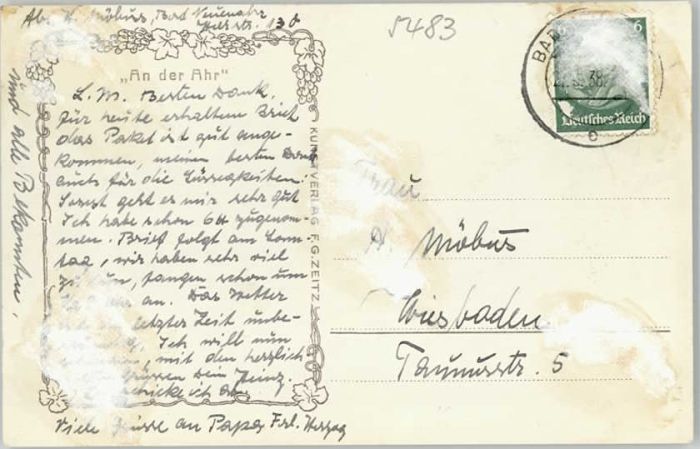 Ab. H. Möbus, Bad Neuenahr
str. 130
5483
„An der Ahr“
L. M. Besten Dank,
für heute erhalten Brief
das Paket ist gut ange-
kommen, meinen besten Dank
auch für die Süssigkeiten.
Sonst geht es mir sehr gut
Ich habe schon 6 zugenom-
men. Brief folgt am Sonn-
tag, wir haben sehr viel
zu tun, fangen schon um
Uhr an. Das Wetter
ist in letzter Zeit unbe-
ständig, Ich will nun
schliessen, mit den herzlich
Grüssen dein Heinz.
schicke ich an
Viele Grüsse an Papa Frl. Herzog
und alle Bekannten.
KUNSTVERLAG F.G.ZEITZ
BAD
38
6
Deutsches Reich
Frau
A. Möbus
Wiesbaden
Taunusstr. 5